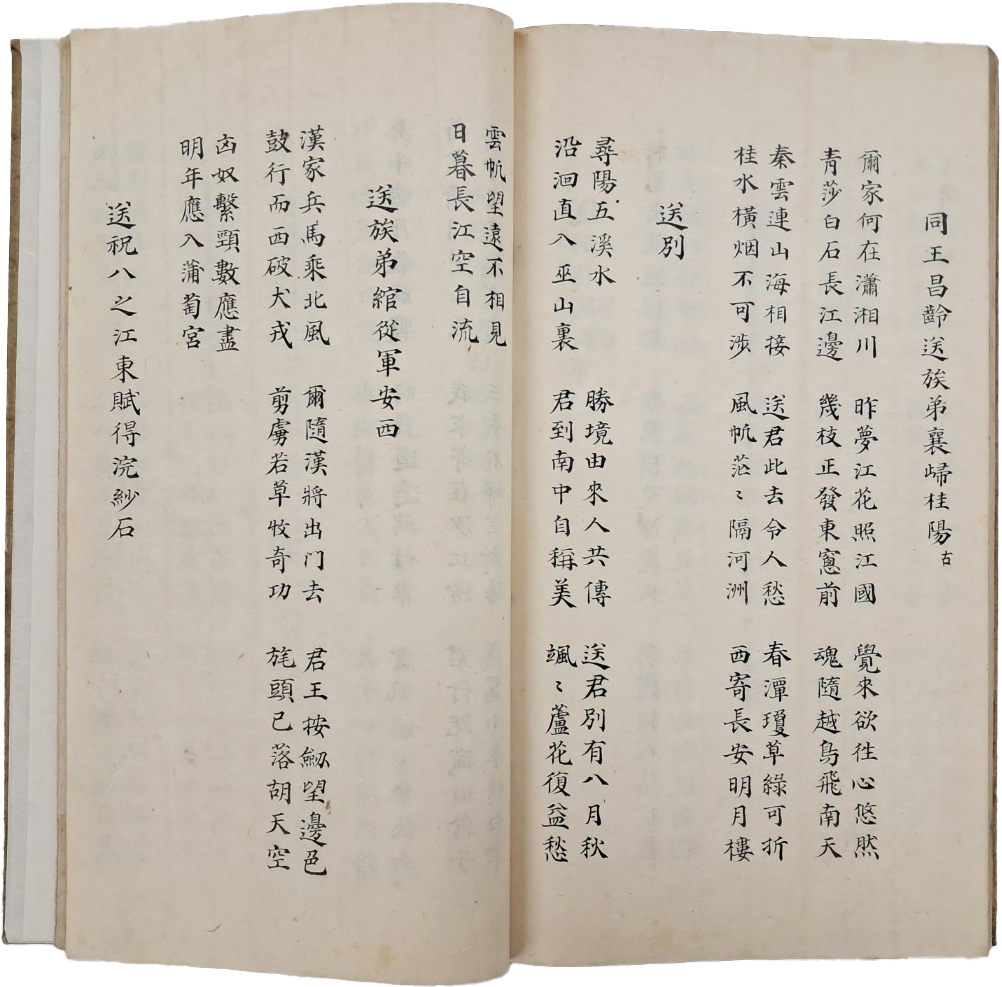 同王昌齡送族弟襄歸桂陽 古
爾家何在瀟湘川 昨夢江花照江國 覺來欲往心悠然
青莎白石長江邊 幾枝正發東窻前 魂隨越鳥飛南天
秦雲連山海相接 送君此去令人愁 春潭瓊草綠可折
桂水橫烟不可涉 風帆茫〻隔河洲 西寄長安明月樓
送別
尋陽五溪水 勝境由來人共傳 送君別有八月秋
沿洄直入巫山裏 君到南中自稱美 颯〻蘆花復益愁
雲帆望遠不相見
日暮長江空自流
送族弟綰從軍安西
漢家兵馬乘北風 爾隨漢將出門去 君王按劒望邊色
鼓行而西破犬戎 剪虜若草收奇功 旄頭已落胡天空
匈奴繫頸數應盡
明年應入蒲萄宮
送祝八之江東賦得浣紗石